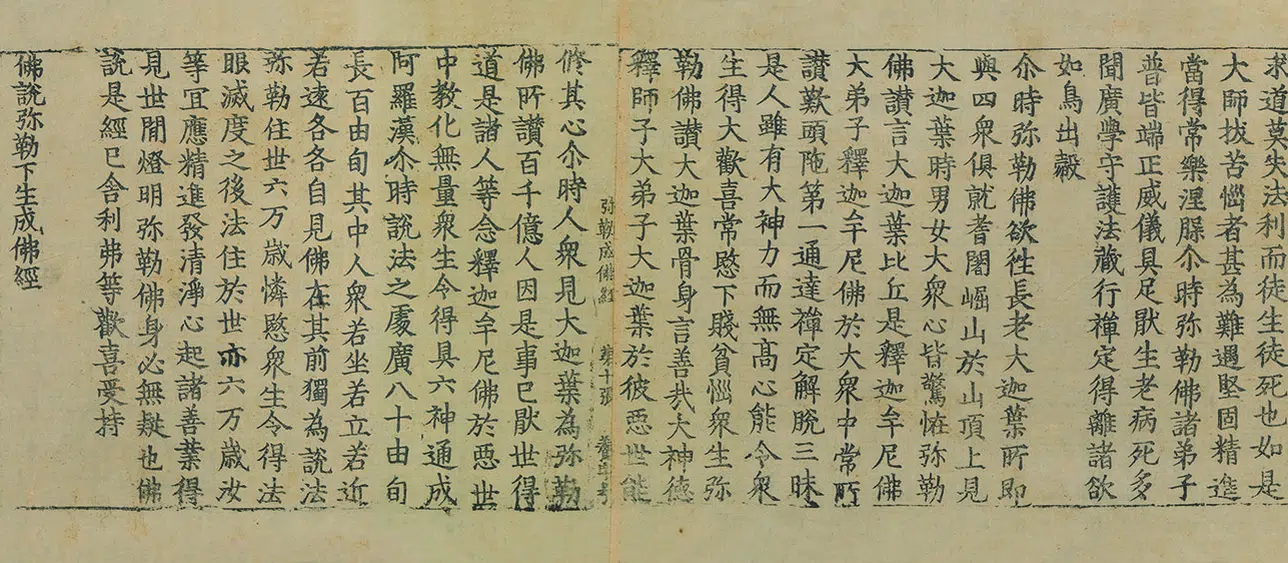 求道莫失法利而徒生徒死也如是
大師拔苦惱者甚為難遇堅固精進
當得常樂涅槃尒時弥勒佛諸弟子
普皆端正威儀具足猒生老病死多
聞廣學守護法藏行禪定得離諸欲
如鳥出㲉
尒時弥勒佛欲往長老大迦葉所即
與四衆俱就耆闍崛山於山頂上見
大迦葉時男女大衆心皆驚恠弥勒
佛讃言大迦葉比丘是釋迦牟尼佛
大弟子釋迦牟尼佛於大衆中常所
讃歎頭陁第一通達禪定解脫三昧
是人雖有大神力而無髙心能令衆
生得大歡喜常愍下賤貧惱衆生弥
勒佛讃大迦葉骨身言善哉大神德
釋師子大弟子大迦葉於彼惡世能
弥勒成佛經 第十張
修其心尒時人衆見大迦葉為弥勒
佛所讃百千億人因是事已猒世得
道是諸人等念釋迦牟尼佛於惡世
中教化無量衆生令得具六神通成
阿羅漢尒時説法之處廣八十由旬
長百由旬其中人衆若坐若立若近
若遠各各自見佛在其前獨為説法
弥勒住世六万歳憐愍衆生令得法
眼滅度之後法住於世亦六万歳汝
等宜應精進發清淨心起諸善業得
見世閒燈明弥勒佛身必無疑也佛
説是經已舍利弗等歡喜受持
佛説弥勒下生成佛經